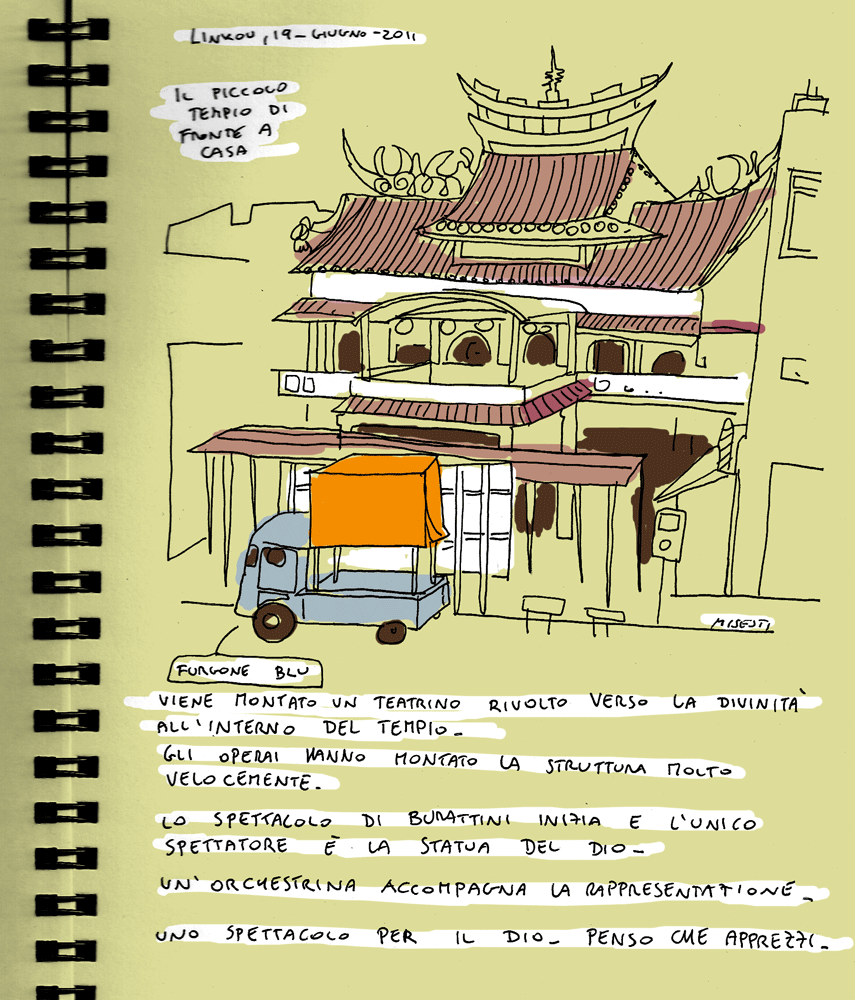 LINKOU, 19-GIUGNO-2011
IL PICCOLO
TEMPIO DI
FRONTE A
CASA
MISESTI
FURGONE BLU
VIENE MONTATO UN TEATRINO RIVOLTO VERSO LA DIVINITÀ
ALL'INTERNO DEL TEMPIO_
GLI OPERAI HANNO MONTATO LA STRUTTURA MOLTO
VELOCEMENTE.
LO SPETTACOLO DI BURATTINI INIZIA E L'UNICO
SPETTATORE È LA STATUA DEL DIO_
UN'ORCHESTRINA ACCOMPAGNA LA RAPPRESENTAZIONE_
UNO SPETTACOLO PER IL DIO_ PENSO CHE APPREZZI_